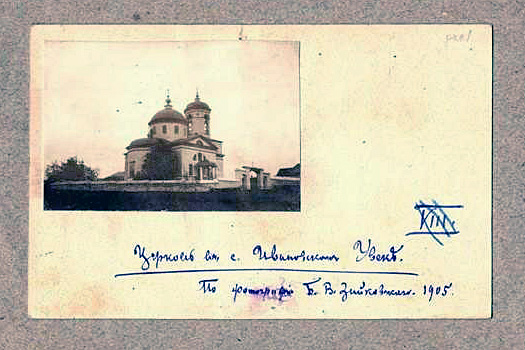 XIII
Церковь въ с. Ивановскомъ Увекѣ.
По фотографіи Б. В. Зайковскаго. 1905.